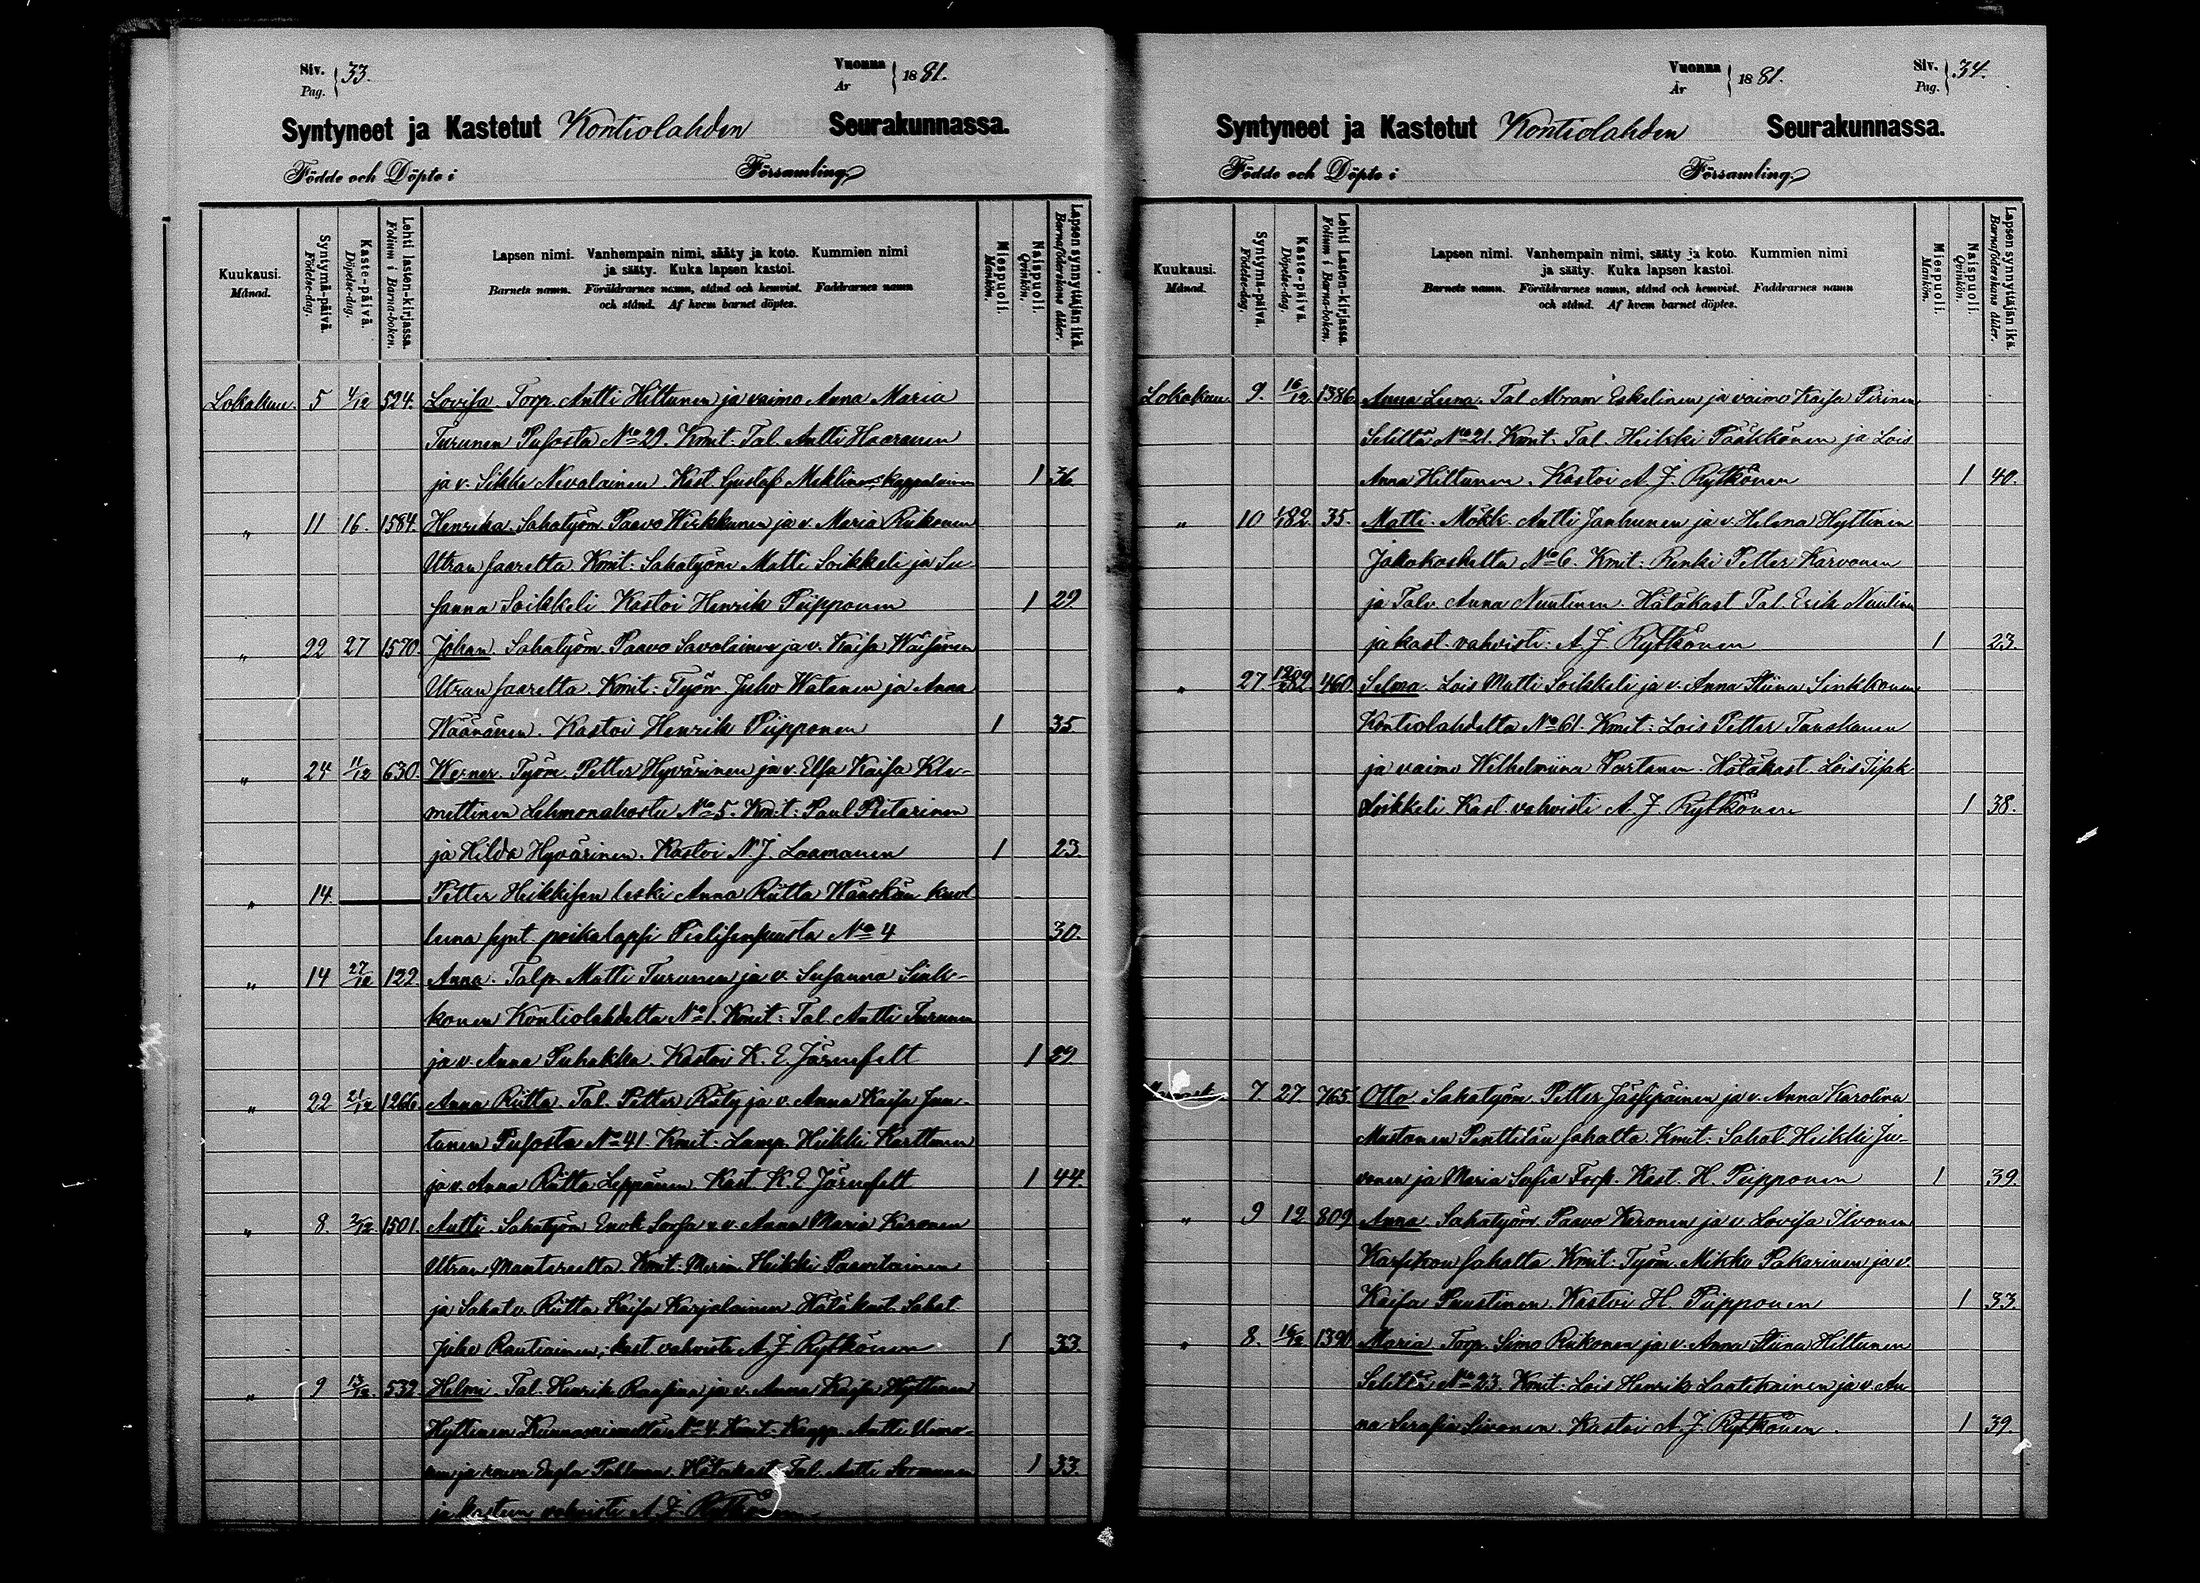 Siv. 33.
Pag.
Vuonna 1881.
År
Syntyneet ja Kastetut Kontiolahden Seurakunnassa.
Födde och Döpte i Församling
Kuukausi.
Månad.
Syntymä-päivä.
Födelse-dag.
Kaste-päivä.
Döpelse-dag.
Lehti lasten-kirjassa.
Folium i Barna-boken.
Lapsen nimi. Vanhempain nimi, sääty ja koto. Kummien nimi
ja sääty. Kuka lapsen kastoi.
Barnets namn. Föräldrarnes namn, stånd och hemvist. Faddrarnes namn
och stånd. Af hvem barnet döptes.
Miespuoli.
Mankön.
Naispuoli.
Qvinkön.
Lapsen synnyttäjän ikä.
Barnaföderskans ålder.
Lokakuu. 5 4/12 524. Lovisa. Torp. Antti Hiltunen ja vaimo Anna Maria
Turunen Pusosta No 29. Kmit: Tal. Antti Haaranen
ja v. Sikke Nevalainen. Kast Gustaf Meklin, kappalainen 1 36
" 11 16. 1584. Henrika. Sahatyöm. Paavo Wirkkunen ja v. Maria Riikonen
Utran saarelta. Kmit: Sahatyöm Matti Soikkeli ja Su-
sanna Soikkeli. Kastoi Henrik Piipponen 1 29
" 22 27 1570. Johan. Sahatyöm. Paavo Savolainen ja v. Kaisa Wäisänen
Utran saarelta. Kmit: Työm. Juho Watanen ja Anna
Wäänänen. Kastoi Henrik Piipponen 1 35
" 24 11/12 630. Werner. Työm. Petter Hyvärinen ja v. Elsa Kaisa Kle-
mettinen Lehmonahosta No 5. Kmit: Paul Pietarinen
ja Hilda Hyvärinen. Kastoi N. J. Laamanen 1 23.
" 14. Petter Heikkisen leski Anna Riitta Wänskän kuol
leena synt poikalapsi Pielisensuusta No 4 30.
" 14 27/12 122. Anna. Talp. Matti Turunen ja v. Susanna Sink-
konen Kontiolahdelta No 1. Kmit: Tal. Antti Turunen
ja v. Anna Puhakka. Kastoi K. E. Järnefelt 1 29.
" 22 21/12 1266 Anna Riitta Tal. Petter Räty ja v. Anna Kaisa Jun-
tunen Pusosta No 41. Kmit: Lamp. Heikki Karttunen
ja v. Anna Riitta Leppänen. Kast. K. E. Järnefelt 1 44.
" 8. 2/12 1501. Antti. Sahatyöm Enok Sorsa v. Anna Maria Kironen
Utran Mantereelta. Kmit: Merim Heikki Paavilainen
ja Sahat v. Riitta Kaisa Karjalainen. Hätäkast. Sahat.
Juho Rautiainen, kast. vahvisti A. J. Rytkönen 1 33.
" 9 13/12. 532. Helmi. Tal. Henrik Raasina ja v. Anna Kaisa Hyttinen
Hyttinen Kunnasniemeltä No 4. Kmit: Kaupp. Antti Uimo-
nen ja rouva Engla Pallman. Hätäkast. Tal. Antti Sormunen 1 33.
ja kasteen vahvisti A. J. Rytkönen
Vuonna 1881.
År
Siv. 34.
Pag.
Syntyneet ja Kastetut Kontiolahden Seurakunnassa.
Födde och Döpte i Församling
Kuukausi.
Månad.
Syntymä-päivä.
Födelse-dag.
Kaste-päivä.
Döpelse-dag.
Lehti Lasten-kirjassa.
Folium i Barna-boken.
Lapsen nimi. Vanhempain nimi, sääty ja koto. Kummien nimi
ja sääty. Kuka lapsen kastoi.
Barnets namn. Föräldrarnes namn, stånd och hemvist. Faddrarnes namn
och stånd. Af hvem barnet döptes.
Miespuoli.
Mankön.
Naispuoli.
Qvinkön.
Lapsen synnyttäjän ikä.
Barnaföderskans ålder.
Lokakuu. 9. 16/12 1386. Anna Leena. Tal Abram Eskelinen ja vaimo Kaisa Pirinen
Seliltä No 21. Kmit: Tal. Heikki Pääkkönen ja Lois
Anna Hiltunen. Kastoi A. J. Rytkönen 1 40.
" 10 1/1 82. 35. Matti. Mökk. Antti Janhunen ja v. Helena Hyttinen
Jakokoskelta No 6. Kmit: Renki Petter Karvonen
ja Talv. Anna Nuutinen. Hätäkast Tal. Erik Nuutinen
ja kast. vahvisti: A. J. Rytkönen 1 23.
" 27 460 Selma. Lois Matti Soikkeli ja v. Anna Stiina Sinkkonen
Kontiolahdelta No 61. Kmit: Lois Petter Tanskanen
ja vaimo Wilhelmiina Partanen. Hätäkast. Lois Iisak
Soikkeli Kast. vahvisti A. J. Rytkönen 1 38.
7. 27 765. Otto Sahatyöm. Petter Jässipäinen ja v. Anna Karolina
Mustonen Penttilän sahalta. Kmit: Sahat Heikki Ju-
vonen ja Maria Sofia Torp. Kast. H. Piipponen 1 39.
" 9 12 809 Anna. Sahatyöm. Paavo Keronen ja v. Lovisa Ilvonen
Karsikon sahalta. Kmit: Työm. Mikko Pakarinen ja v.
Kaisa Puustinen. Kastoi H. Piipponen 1 33.
" 8. 16/12 1390 Maria. Torp. Simo Riikonen ja v. Anna Stiina Hiltunen
Selitä No 23. Kmit: Lois Henrik Laatikainen ja v. An
na Serafia Sivonen. Kastoi A. J. Rytkönen. 1 39.